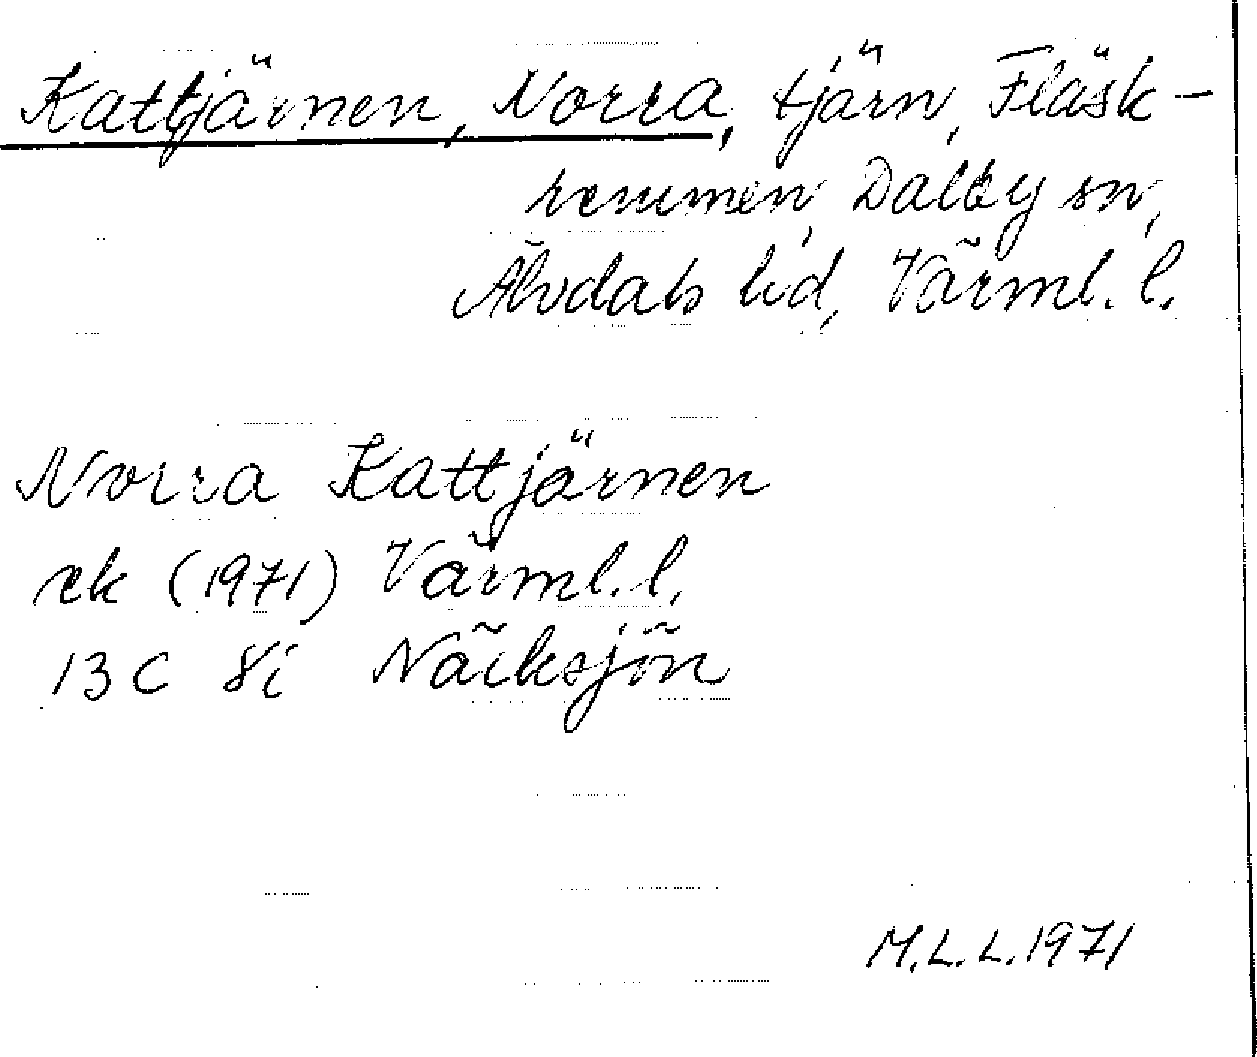 Kattjärnen, Norra, tjärn, Fläsk-
remmen, Dalby sn,
Älvdals hd, Värml. l.
Norra Kattjärnen
rk (1971) Värml. l.
13 C 8i Näcksjön
M.L.L. 1971